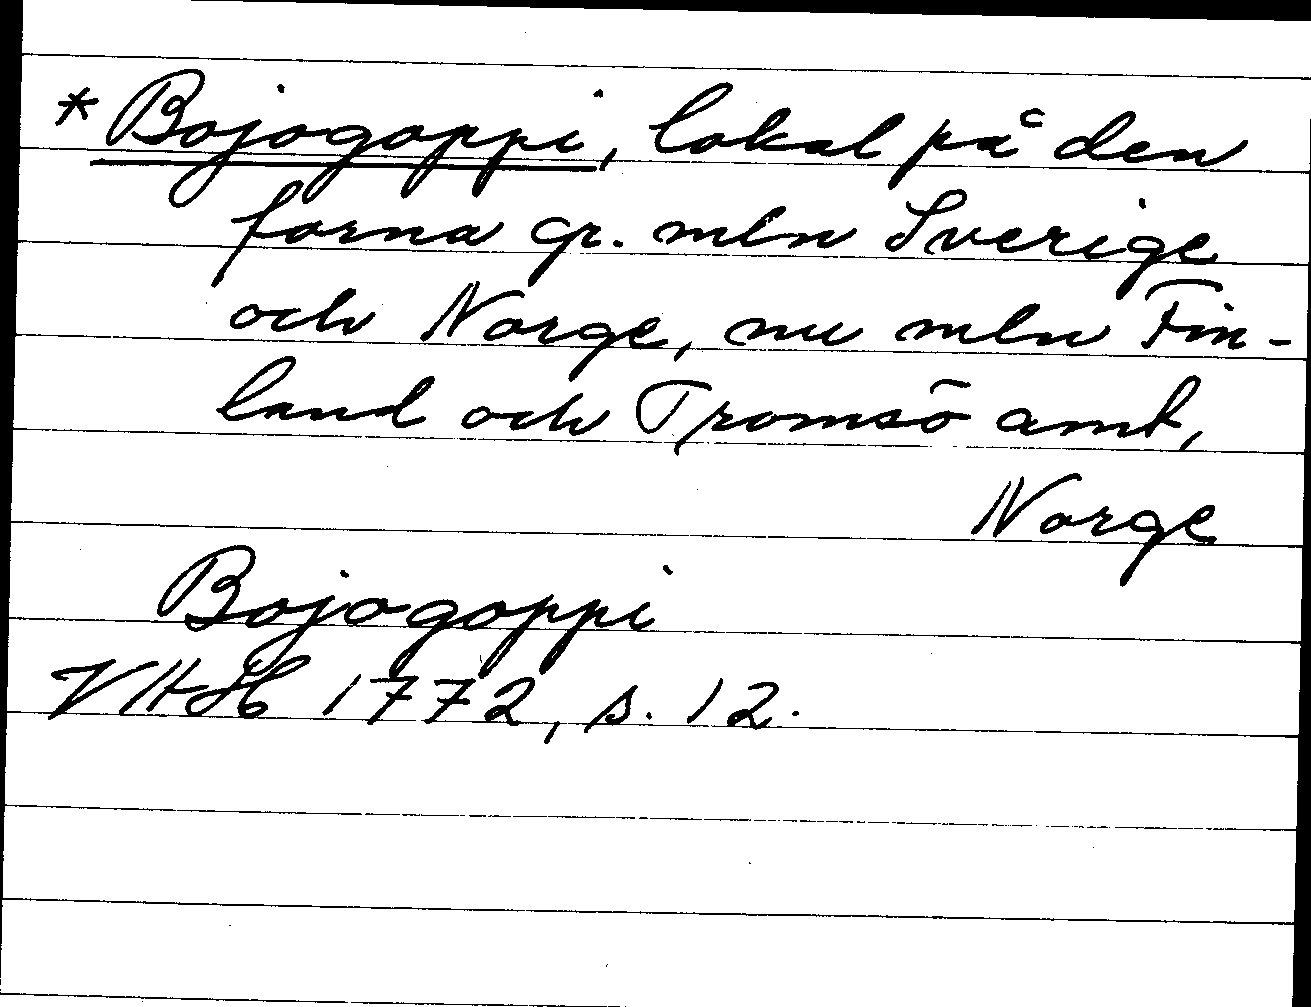 * Bojogoppi, lokal på den
forna gr. mln Sverige
och Norge, nu mln Fin-
land och Tromsö amt,
Norge
Bojogoppi
VHAH 1772, s. 12.